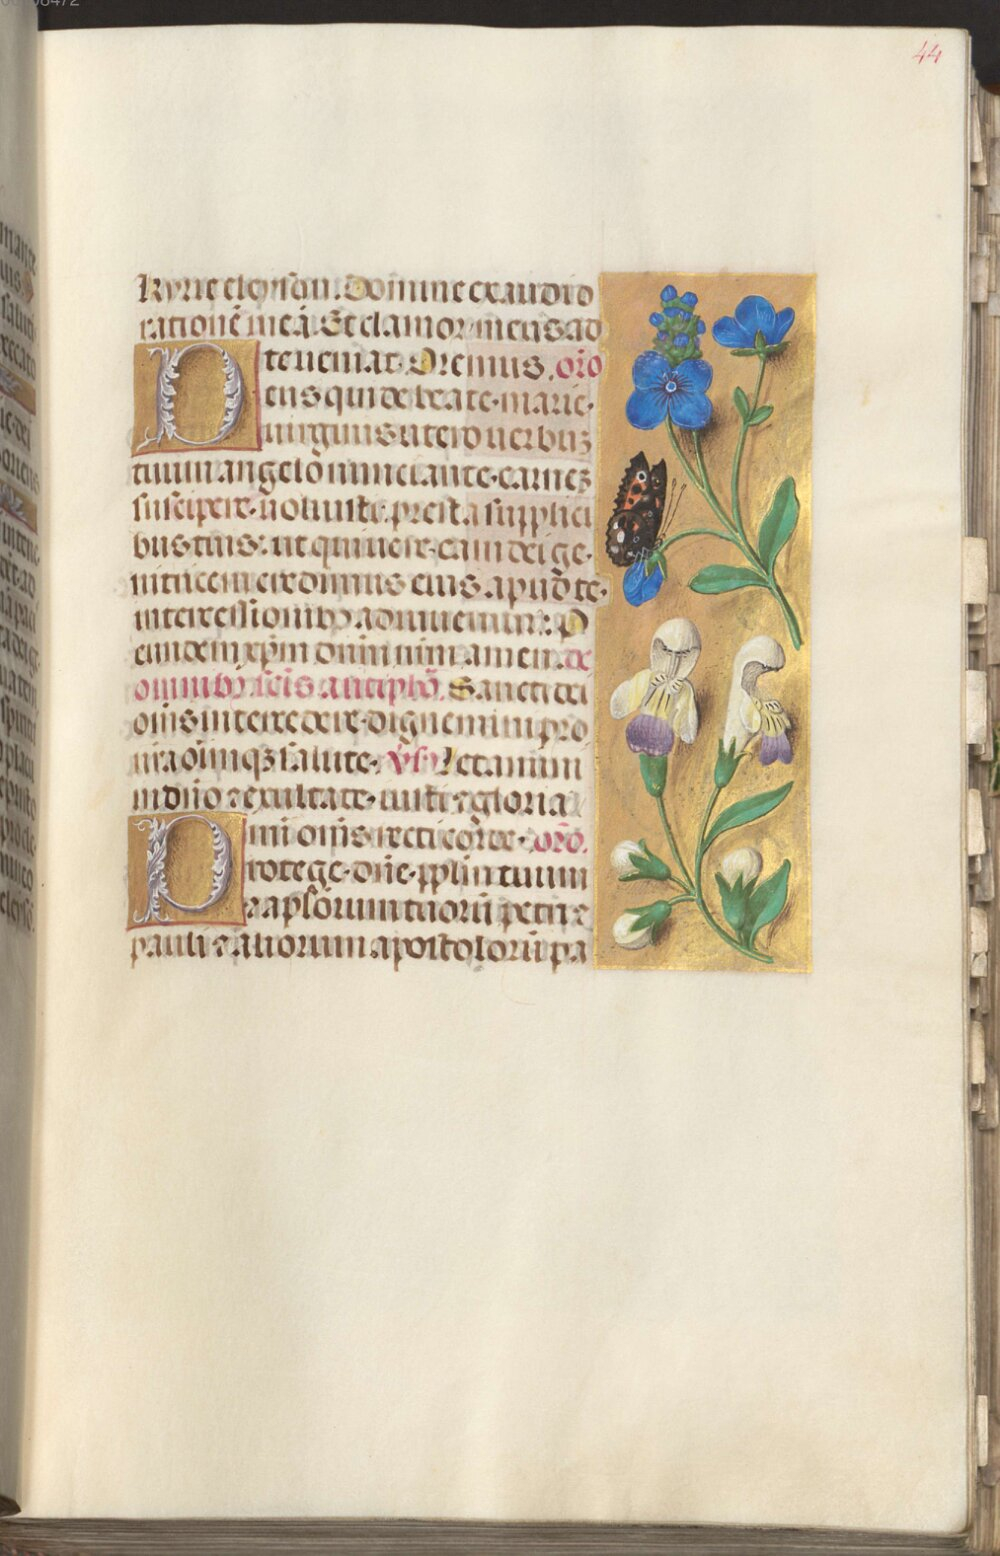 44
Kyrie eleyson. Domine exaudi o
rationē meā. Et clamor meus ad
te veniat. Oremus. orō
Deus qui de beate marie
virginis utero verbuȝ
tuum angelo nunciante carneȝ
suscipere voluisti. presta supplici
bus tuis: ut qui vere eam dei ge
nitricem credimus eius apud te
intercessionibꝰ adiuvemur: p
eundem xp̄m dnm̄ nrm̄ amen. de
omnibꝰ sc̄is antiphō. Sancti dei
oms̄ intercedere dignemini pro
nra om̄iumqȝ salute. v̄s. Letamini
in dño ⁊ exultate iusti ⁊ gloria
mini om̄s recti corde. orō.
Protege dñe pplm̄ tuum
⁊ aplorum tuorū petri ⁊
pauli ⁊ aliorum apostolorū pa